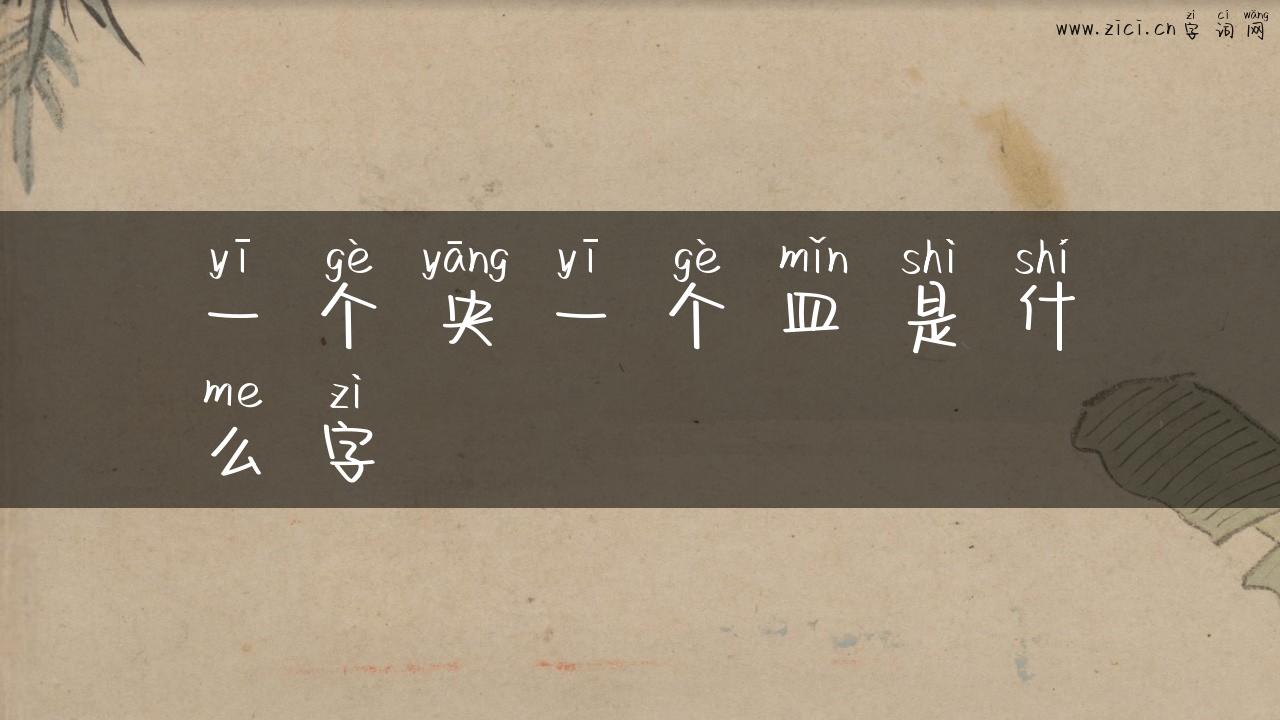 zì cí wǎng
www.zici.cn 字词网
yī gè yāng yī gè mǐn shì shí
一个央一个皿是什
me zì
么字